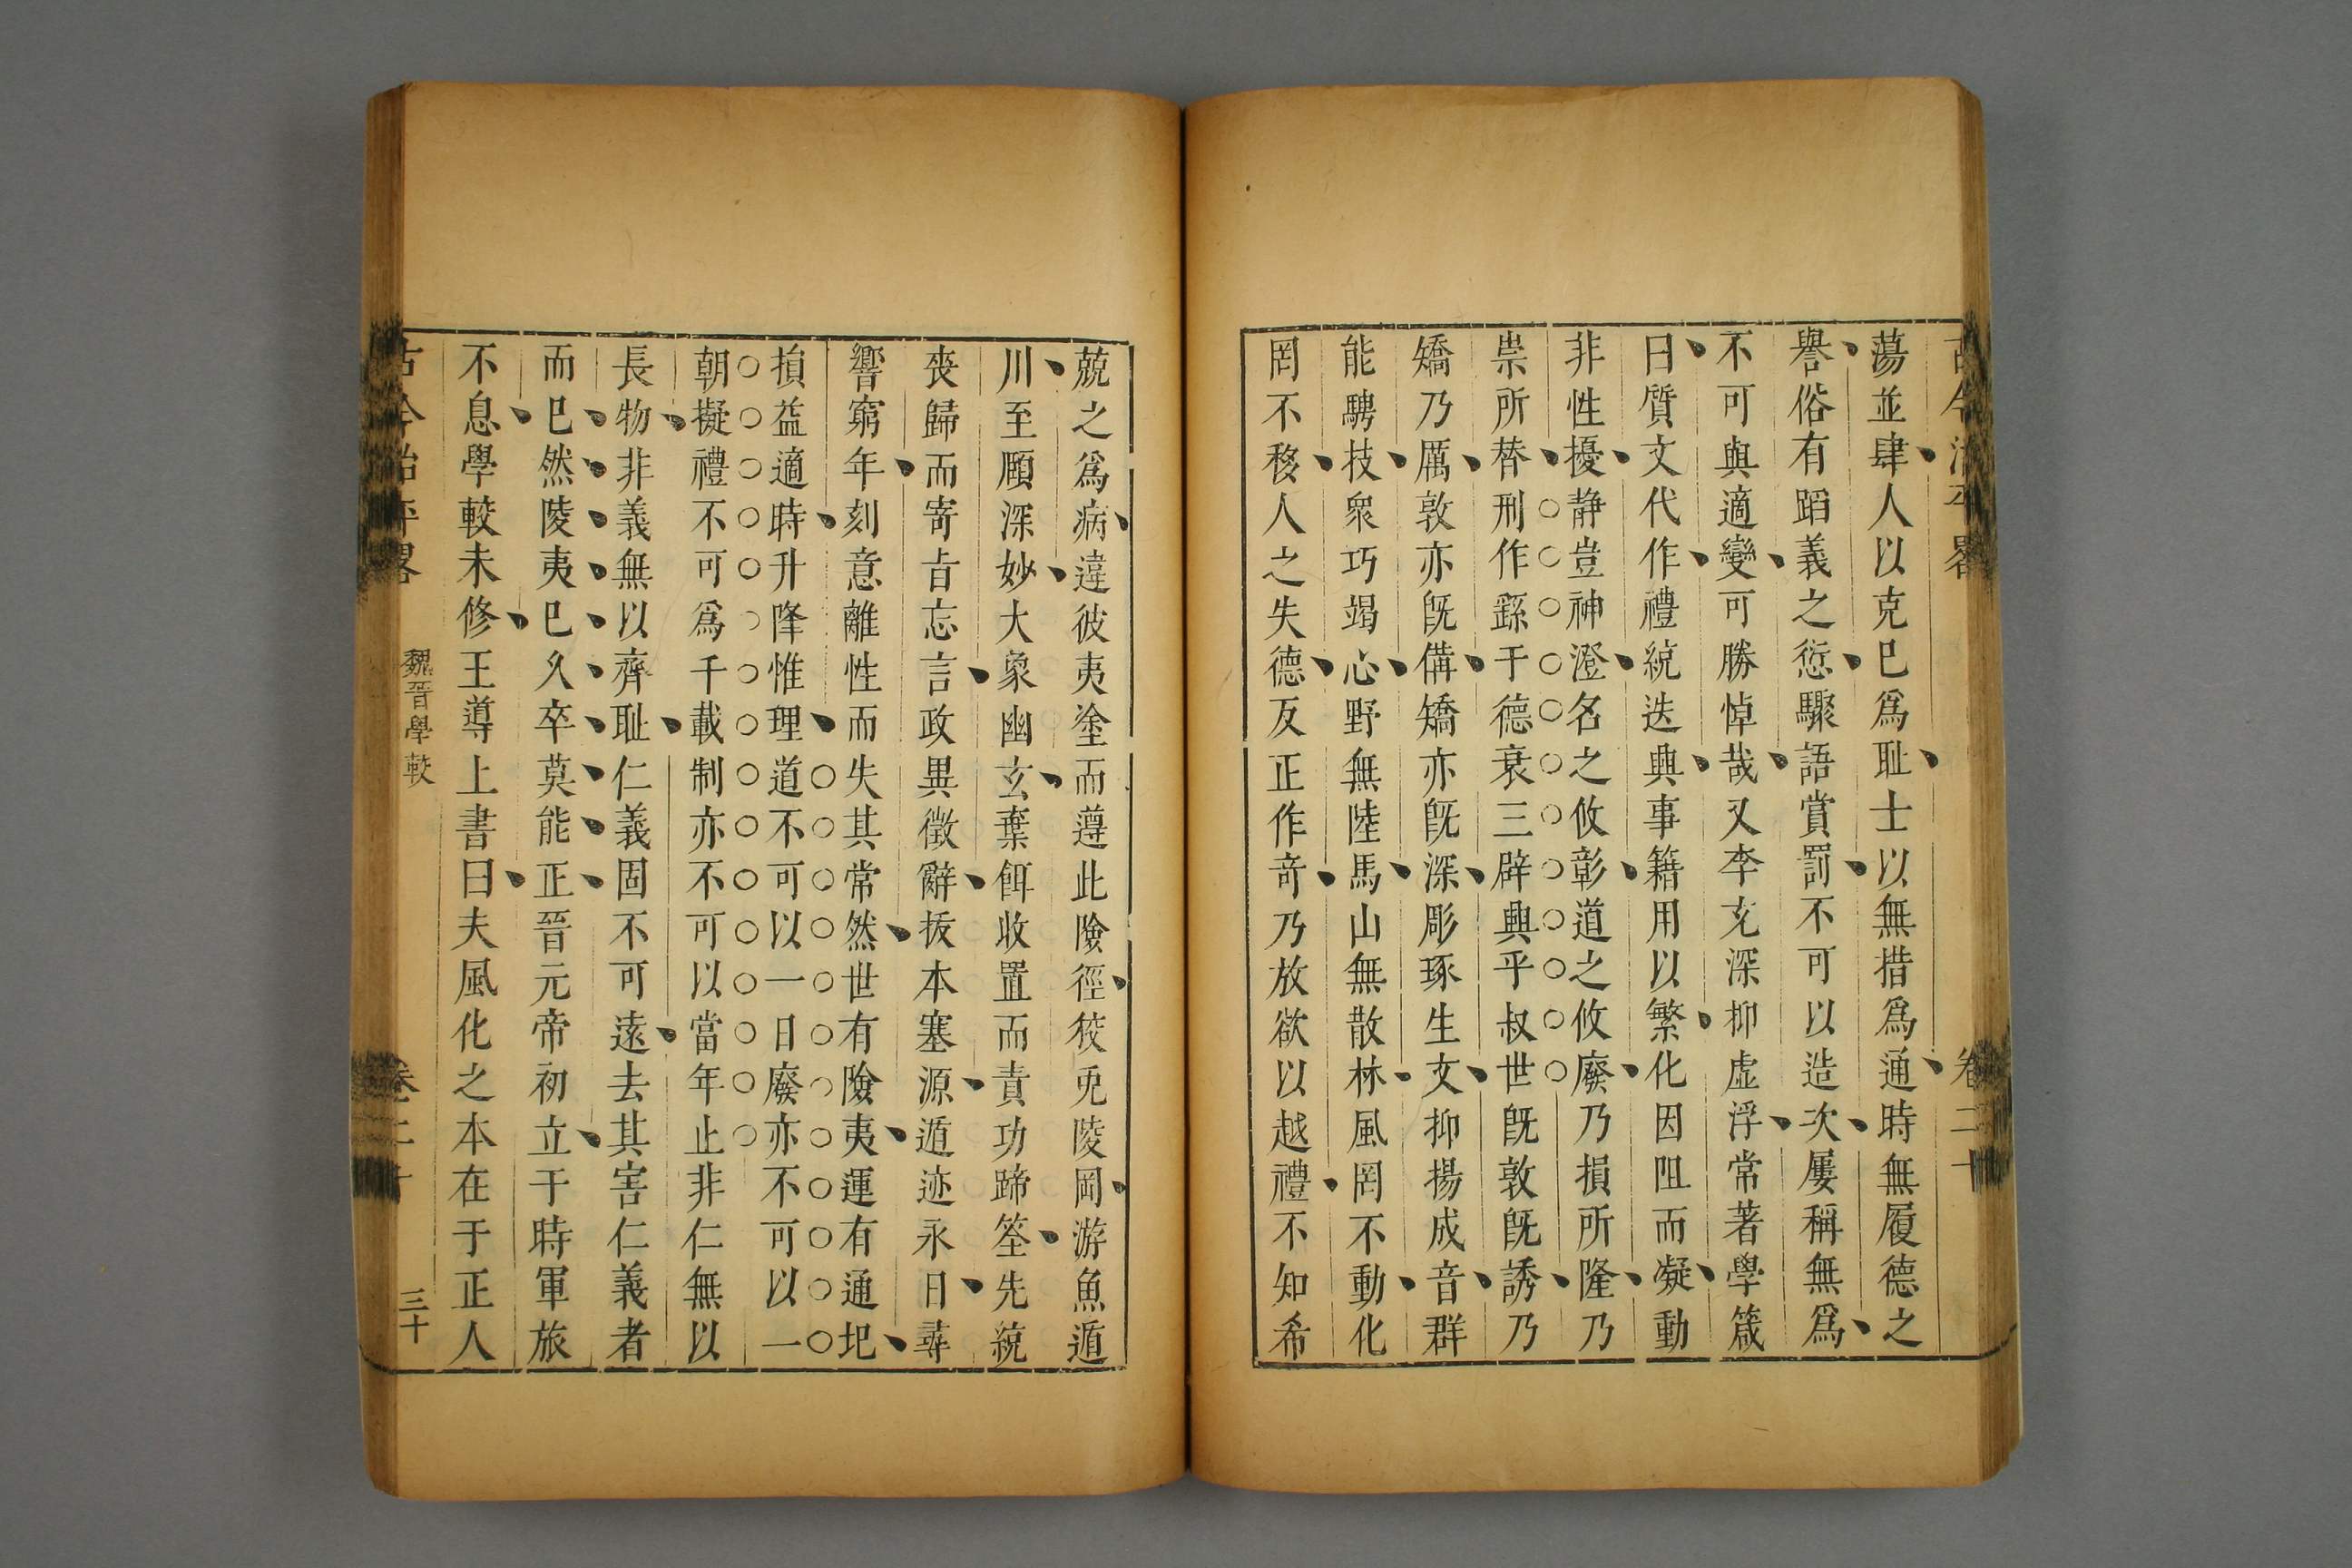 古今治平畧 卷二十
蕩並肆人以克巳爲耻士以無措爲通時無履德之
譽俗有蹈義之愆驟語賞罰不可以造次屢稱無爲
不可與適變可勝悼哉又李充深抑虛浮常著學箴
曰質文代作禮統迭興事籍用以繁化因阻而凝動
非性擾静豈神澄名之攸彰道之攸廢乃損所隆乃
祟所替刑作繇于德衰三辟興乎叔世旣敦旣誘乃
矯乃厲敦亦旣備矯亦旣深彫琢生文抑揚成音群
能騁技衆巧竭心野無陸馬山無散林風罔不動化
罔不移人之失德反正作奇乃放欲以越禮不知希
兢之爲病違彼夷塗而遵此險徑狡兎陵岡游魚遁
川至頥深妙大象幽玄棄餌收置而責功蹄筌先統
喪歸而寄㫖忘言政異徵辭拔本塞源遁迹永日尋
響窮年刻意離性而失其常然世有險夷運有通圯
損益適時升降惟理道不可以一日廢亦不可以一
朝擬禮不可爲千載制亦不可以當年止非仁無以
長物非義無以齊耻仁義固不可遠去其害仁義者
而巳然陵夷巳久卒莫能正晉元帝初立于時軍旅
不息學較未修王導上書曰夫風化之本在于正人
古今治平畧 魏晉學較 卷二十 三十